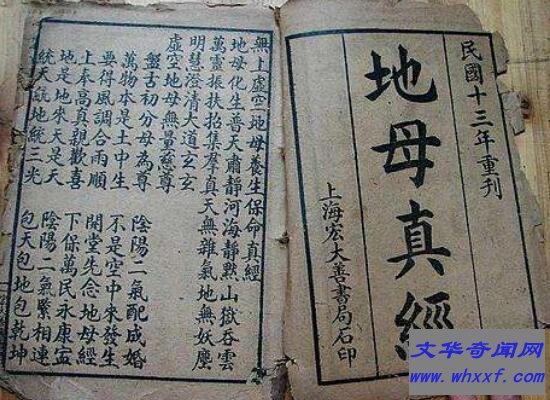 民國十三年重刊
地母真經
上海宏大善書局石印
無上虛空地母養生保命真經
地母化生普天肅靜河海靜默山嶽吞雲
萬靈振扶抬集羣真天無雜氣地無妖塵
明慧澄清大道玄玄
虛空地母無量慈尊
盤古初分母為尊 陰陽二氣配成婚
萬物本是土中生 不是空中來發生
要得風調合雨順 開堂先念地母經
上奉高真親歡喜 下保萬民永康寧
地是地來天是天 陰陽二氣緊相連
統天統地統三光 包天包地包乾坤
文华奇闻网
www.whxxf.com